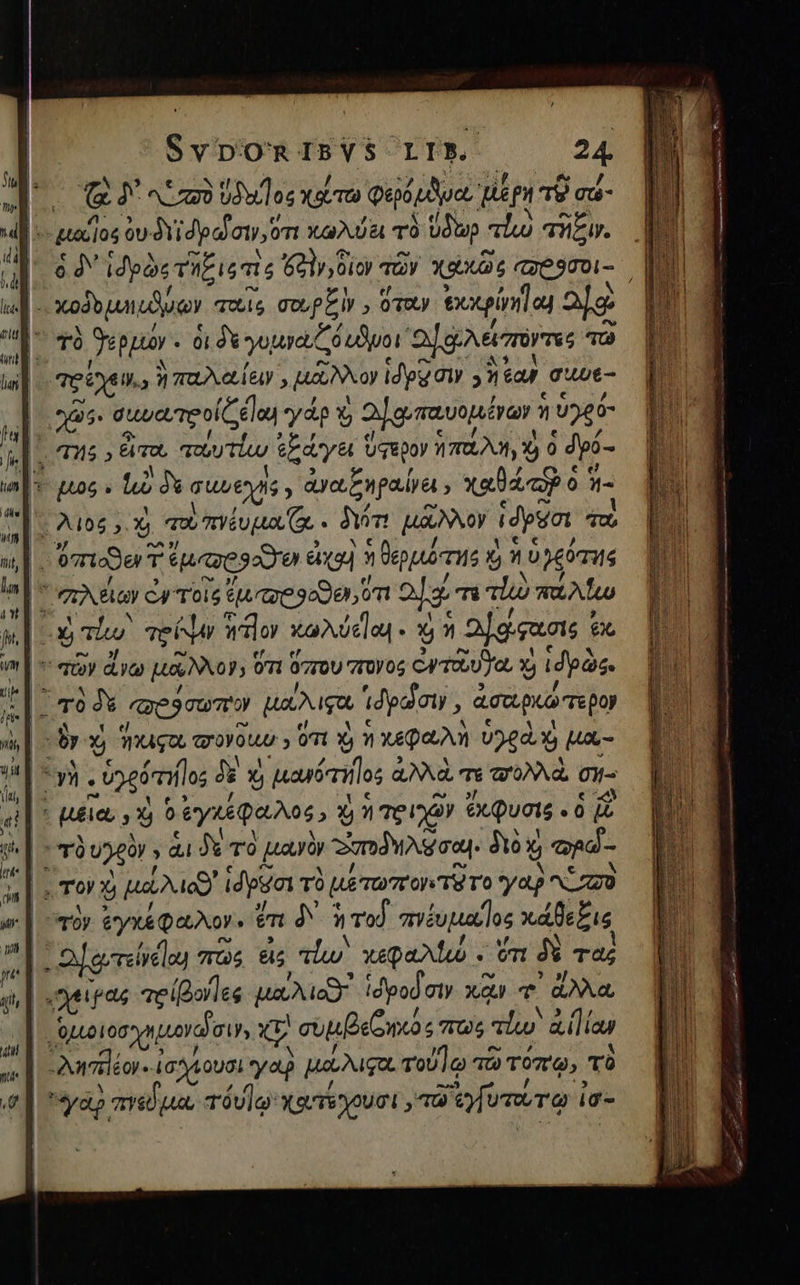 SVDORIBVS LIB. 24
τὰ δ' ὑπὸ ὕδατος κάτω φερόμενα μέρη τοῦ σώ-
ματος οὐ διϊδροῦσιν, ὅτι κωλύει τὸ ὕδωρ τὴν τῆξιν.
ὁ δ' ἱδρὼς τῆξις τίς ἐστιν, οἷον τῶν κακῶς προσῳ-
κοδομημένων ταῖς σαρξὶν, ὅταν ἐκκρίνηται διὰ
τὸ θερμόν. οἱ δὲ γυμναζόμενοι διαλείποντες τῷ
τρέχειν, ἢ παλαίειν, μᾶλλον ἱδροῦσιν, ἢ ἐὰν συνε-
χῶς. συναθροίζεται γὰρ καὶ διαπαυομένων ἡ ὑγρό-
της, εἶτα ταύτην ἐξάγει ὕστερον ἡ πάλη, καὶ ὁ δρό-
μος. ἐὰν δὲ συνεχὴς, ἀναξηραίνει, καθάπερ ὁ ἥ-
λιος, καὶ τὰ πνεύματα. διότι μᾶλλον ἱδροῦσι τὰ
ὄπισθεν τῶν ἔμπροσθεν εἰκῇ ἡ θερμότης καὶ ἡ ὑγρότης
πλείων ἐν τοῖς ἔμπροσθεν, ὅτι διά τε τὴν πάλην
καὶ τὴν τρίψιν ἧττον κωλύεται. καὶ ἡ διάφασις ἐκ
τῶν ἄνω μᾶλλον, ὅτι ὅπου πόνος ἐνταῦθα καὶ ἱδρώς.
τὸ δὲ πρόσωπον μάλιστα ἱδροῦσιν, ἀσαρκώτερον
ὂν καὶ ἥκιστα πονοῦν, ὅτι καὶ ἡ κεφαλὴ ὑγρὰ καὶ μα-
νὴ. ὑγρότητος δὲ καὶ μανότητος ἄλλά τε πολλὰ ση-
μεῖα, καὶ ὁ ἐγκέφαλος, καὶ ἡ τριχῶν ἔκφυσις. ὁ μὲν
τὸ ὑγρὸν, αἱ δὲ τὸ μανὸν ἀποδηλοῦσαι. διὸ καὶ πρῶ-
τον καὶ μάλισθ' ἱδροῦσι τὸ μέτωπον· τοῦτο γὰρ ὑπὸ
τὸν ἐγκέφαλον. ἔτι δ' ἡ τοῦ πνεύματος κάθεξις
διατείνεται πῶς εἰς τὴν κεφαλήν. ὅτι δὲ τὰς
χεῖρας τρίβοντες μάλισθ' ἱδροῦσιν κἂν τ' ἄλλα
ὁμοιοσχημονῶσιν, κατὰ συμβεβηκός πως τὴν αἰτίαν
ληπτέον. ἰσχύουσι γὰρ μάλιστα τούτῳ τῷ τόπῳ, τὸ
γὰρ πνεῦμα τούτῳ κατέχουσι, τῷ ἐγγυτάτω ἰσ-